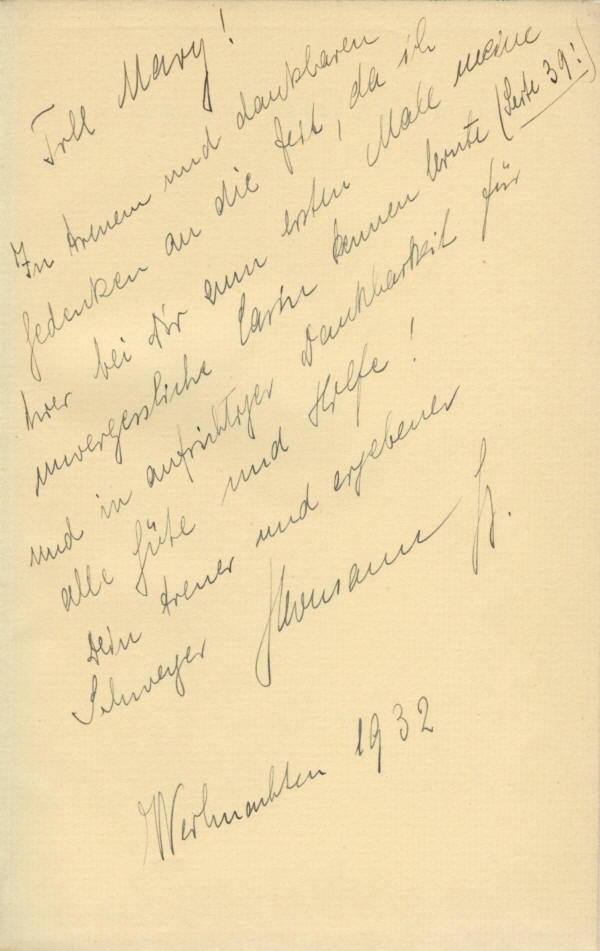 Till Mary!
In treuem und dankbaren
Gedenken an die Zeit, da ich
hier bei Dir zum ersten Male meine
unvergessliche Carin kennen lernte (Seite 39!)
und in aufrichtiger Dankbarkeit für
alle Güte und Hilfe!
Dein treuer und ergebener
Schwager Hermann G.
Weihnachten 1932